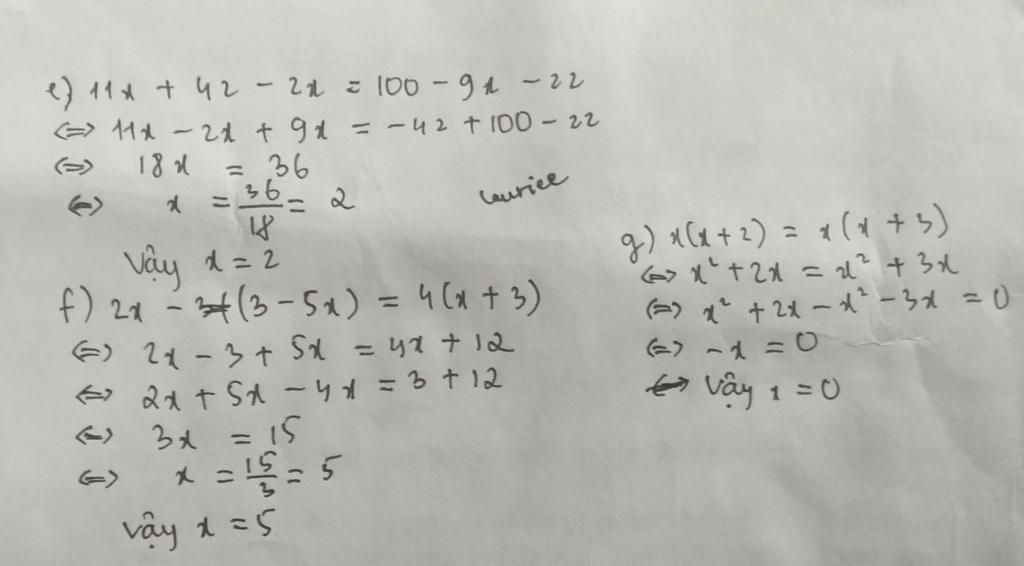 e) 11x + 42 - 2x = 100 - 9x - 22
<=> 11x - 2x + 9x = -42 + 100 - 22
<=> 18x = 36
<=> x = 36/18 = 2
Vậy x = 2
laurice
f) 2x - (3 - 5x) = 4(x + 3)
<=> 2x - 3 + 5x = 4x + 12
<=> 2x + 5x - 4x = 3 + 12
<=> 3x = 15
<=> x = 15/3 = 5
Vậy x = 5
g) x(x + 2) = x(x + 3)
<=> x² + 2x = x² + 3x
<=> x² + 2x - x² - 3x = 0
<=> -x = 0
Vậy x = 0